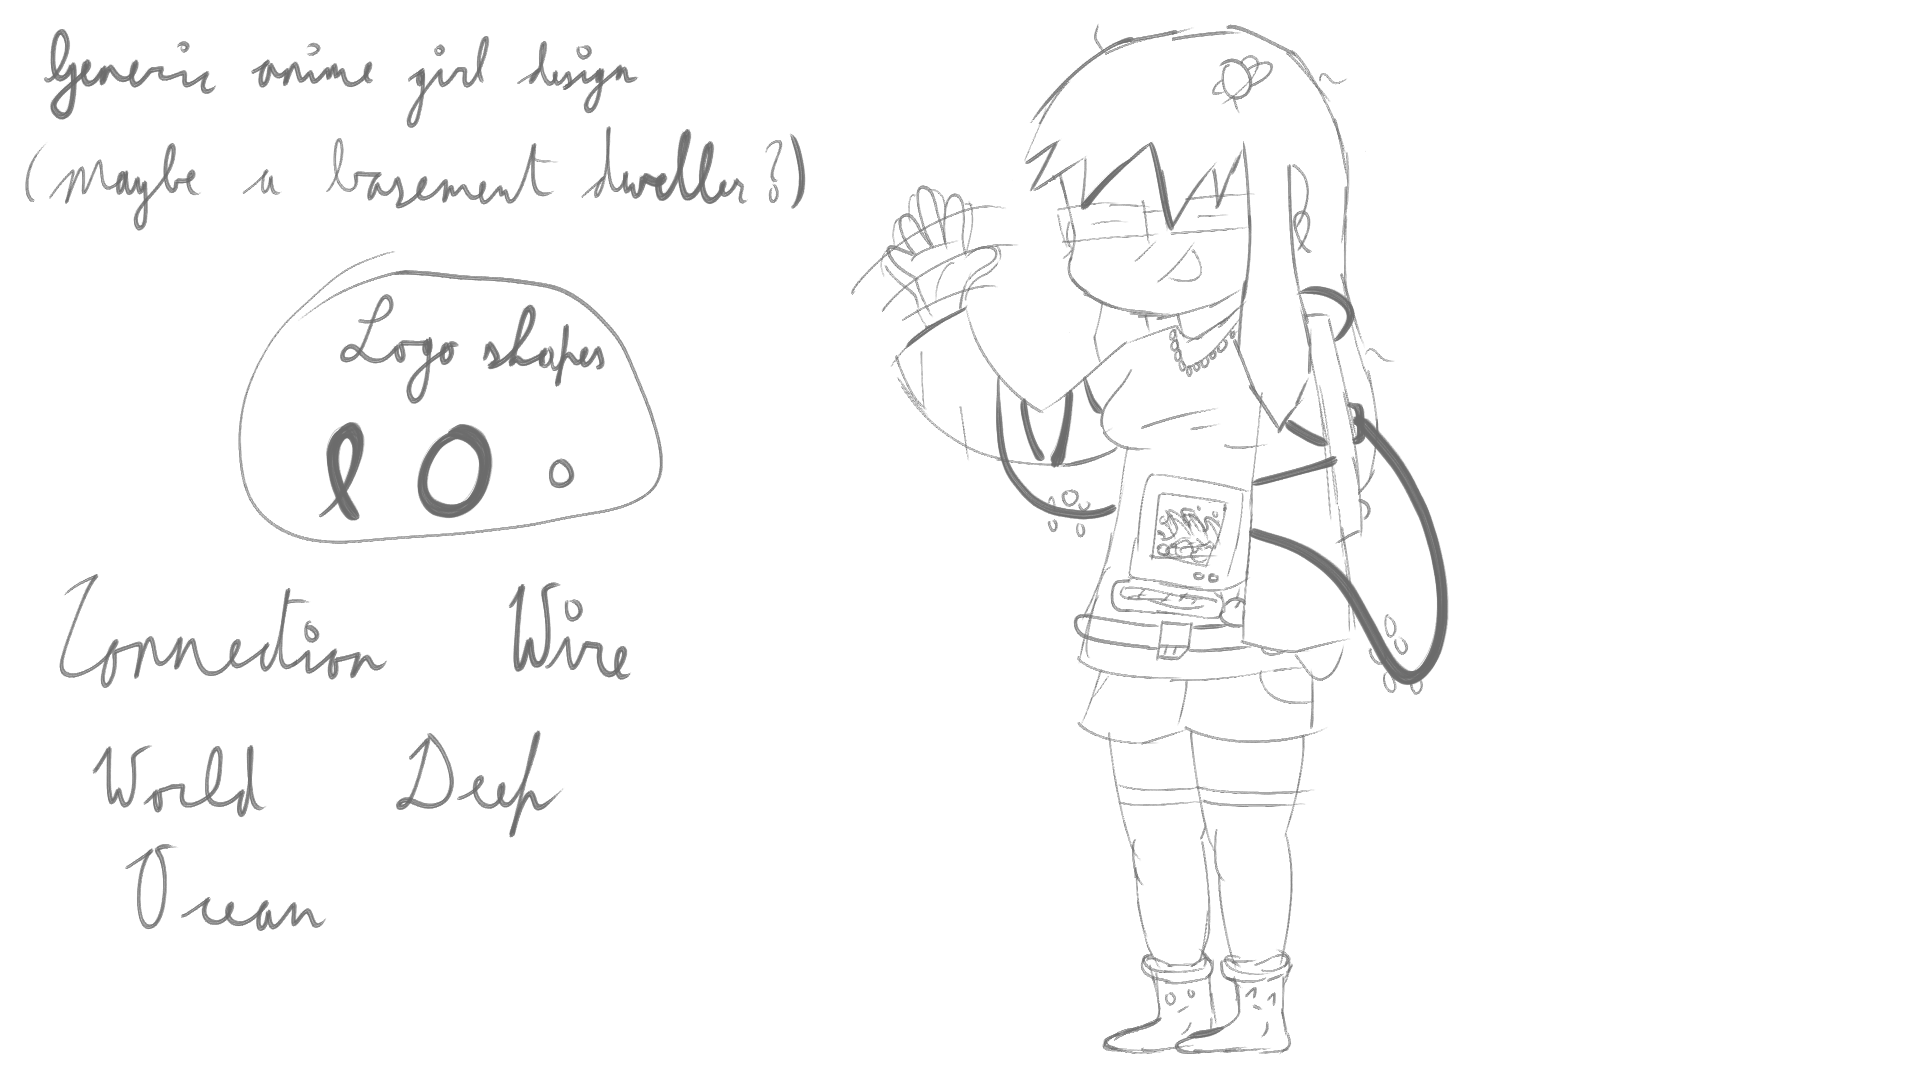 Generic anime girl design
(Maybe a basement dweller?)
Logo shapes
Connection Wire
World Deep
Ocean